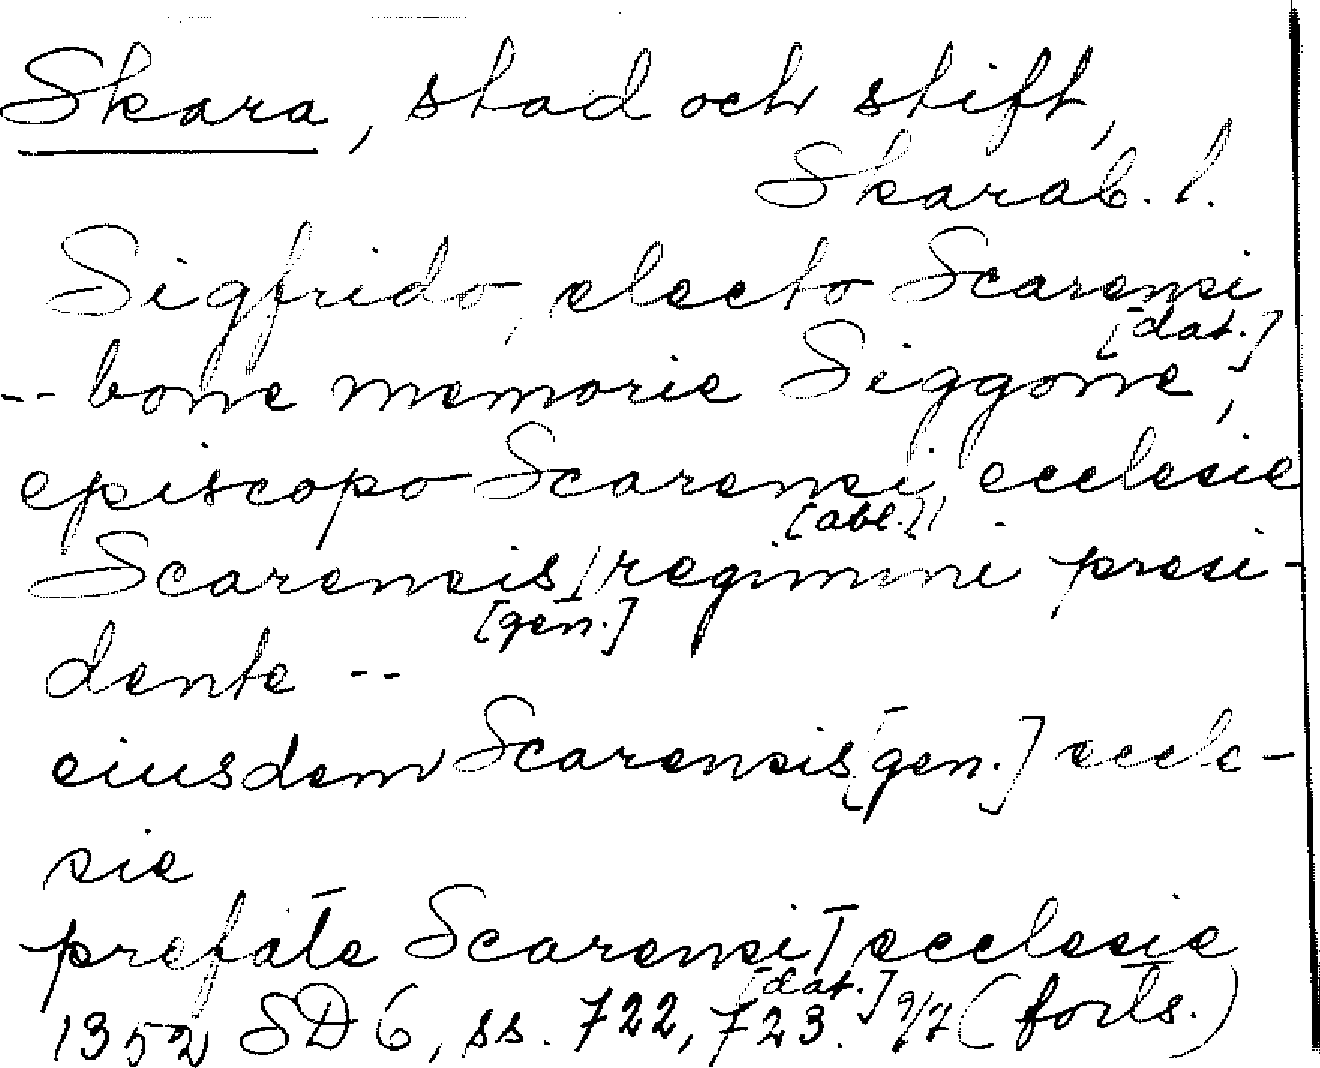 Skara, stad och stift,
Skarab. l.
Sigfrido, electo Scarensi
[dat.]
-- bone memorie Siggone,
episcopo Scarensi, ecclesie
[abl.]
Scarensis regimini presi-
[gen.]
dente --
eiusdem Scarensis [gen.] eccle-
sie
prefate Scarensi ecclesie
[dat.]
1352 SD 6, ss. 722, 723. 9/7 (forts.)